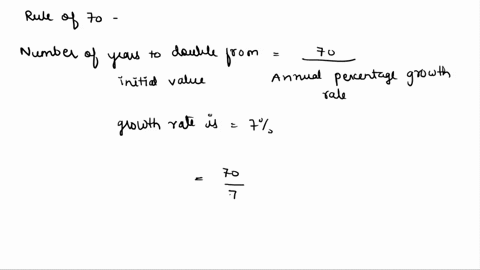 Rule of 70 -
Number of years to double from = 70
initial value Annual percentage growth
rate
growth rate is = 7%
= 70
7